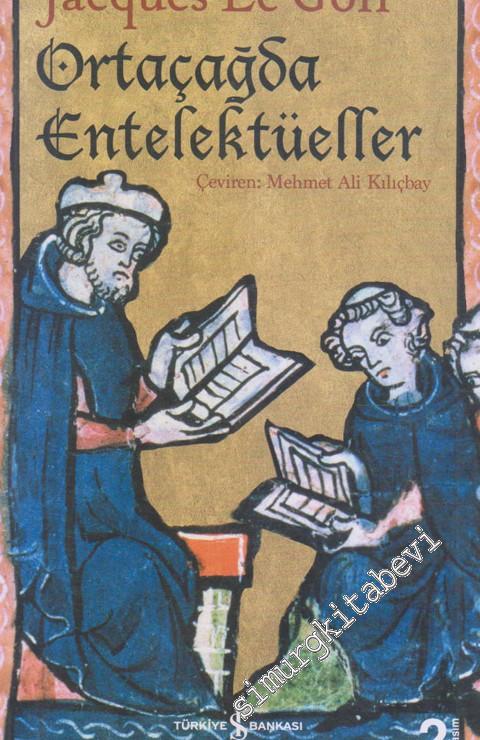 Jacques Le Goff
Ortaçağda
Entelektüeller
Çeviren: Mehmet Ali Kılıçbay
simurgkitabevi
TÜRKİYE İŞ BANKASI
2